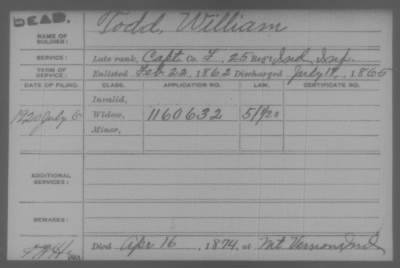 DEAD.
NAME OF SOLDIER: Todd, William
SERVICE: Late rank, Capt Co. F, 25 Reg't Ind Inf.
TERM OF SERVICE: Enlisted Feb 22, 1862 Discharged July 17, 1865
DATE OF FILING. CLASS. APPLICATION NO. LAW. CERTIFICATE NO.
Invalid,
1920 July 6 Widow, 1160632 5/1/920
Minor,
ADDITIONAL SERVICES:
REMARKS:
Died Apr 16, 1874, at Mt. Vernon, Ind